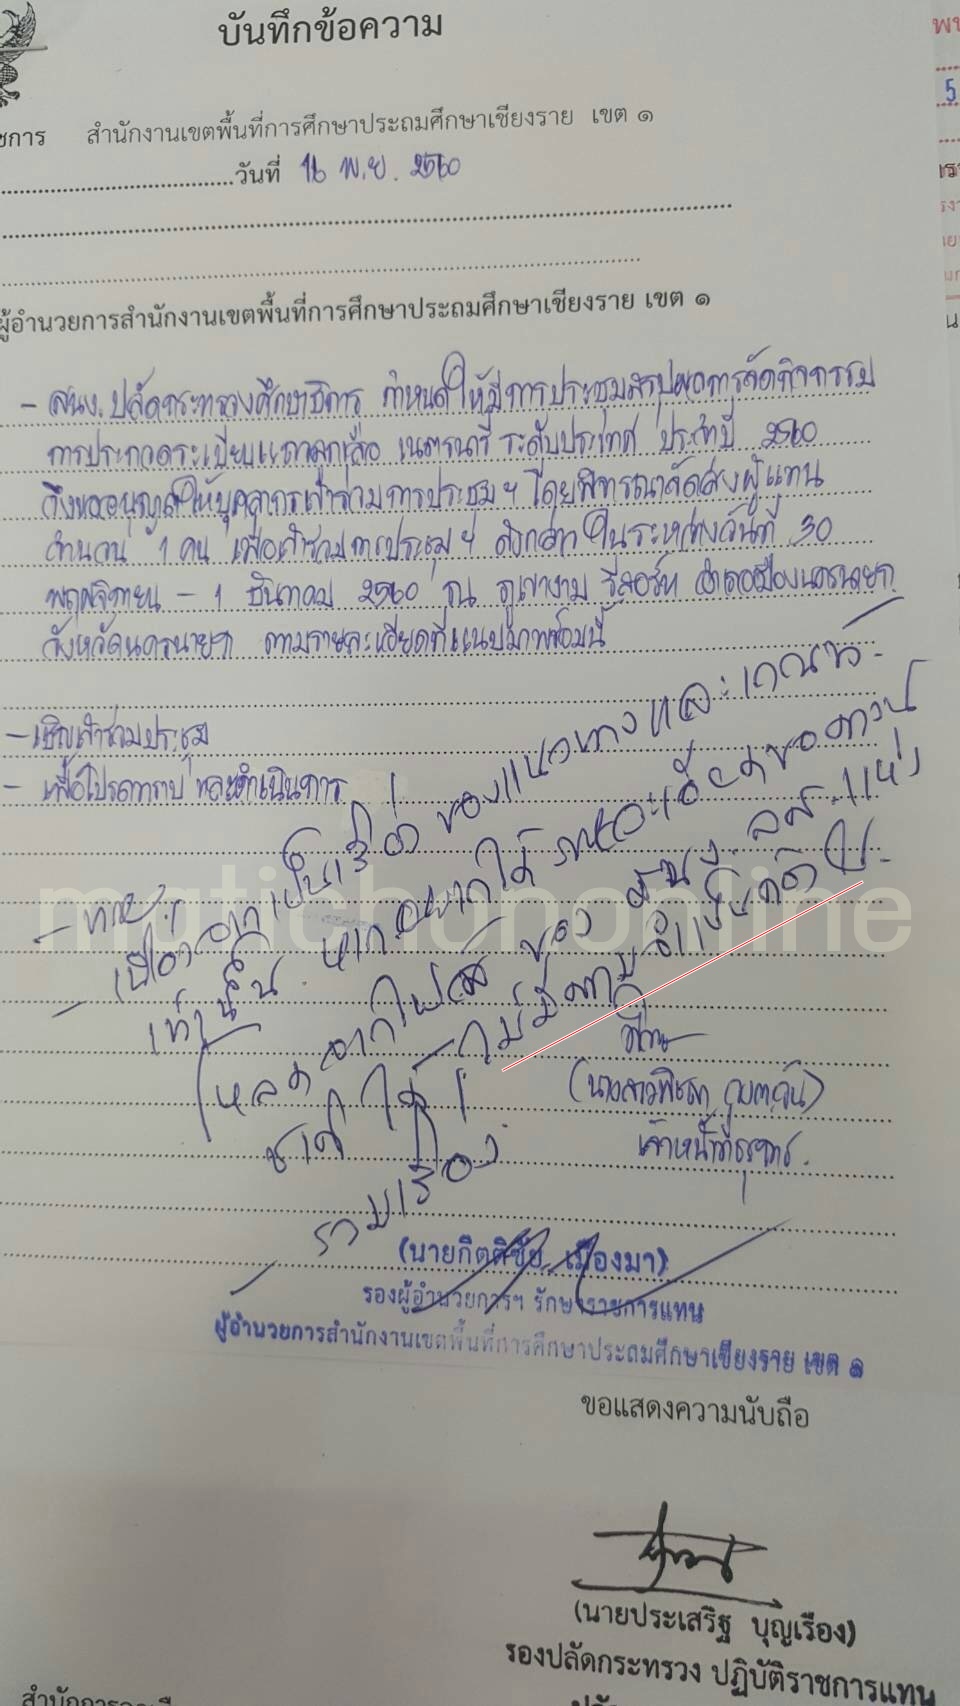 บันทึกข้อความ
ชการ สำนักงานเขตพื้นที่การศึกษาประถมศึกษาเชียงราย เขต ๑
วันที่ 16 พ.ย. 2560
ผู้อำนวยการสำนักงานเขตพื้นที่การศึกษาประถมศึกษาเชียงราย เขต ๑
- สนง.ปลัดกระทรวงศึกษาธิการ กำหนดให้มีการประชุมสรุปผลการจัดกิจกรรม
การประกวดระเบียบแถวลูกเสือ เนตรนารี ระดับประเทศ ประจำปี 2560
จึงขออนุญาตให้บุคลากรเข้าร่วมการประชุมฯ โดยพิจารณาจัดส่งผู้แทน
จำนวน 1 คน เพื่อเข้าร่วมการประชุมฯ ดังกล่าว ในระหว่างวันที่ 30
พฤศจิกายน - 1 ธันวาคม 2560 ณ ภูเขางาม รีสอร์ท อำเภอเมืองนครนายก
จังหวัดนครนายก ตามรายละเอียดที่แนบมาพร้อมนี้
- เชิญเข้าร่วมประชุม
- เพื่อโปรดทราบ และดำเนินการ
- ทราบ
- เนื่องจากเป็นเรื่อง ของแนวทางและเกณฑ์
เท่านั้น หากอยากได้รายละเอียดขอทาง
โหลดจากไฟล์ ของ
matichononline
ชาติ ได้
รวมเรื่อง
(นางสาวพิชชา
เจ้าหน้าที่ธุรการ
(นายกิตติชัย เมืองมา)
รองผู้อำนวยการฯ รักษาราชการแทน
ผู้อำนวยการสำนักงานเขตพื้นที่การศึกษาประถมศึกษาเชียงราย เขต ๑
ขอแสดงความนับถือ
(นายประเสริฐ บุญเรือง)
รองปลัดกระทรวง ปฏิบัติราชการแทน